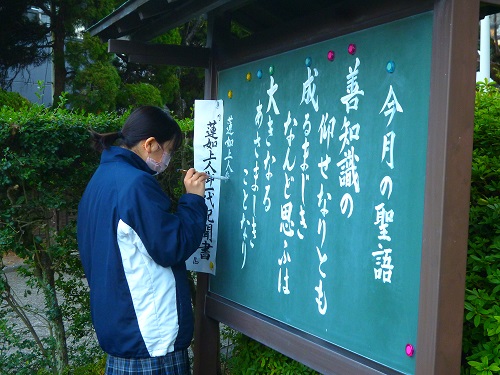 今月の聖語
善知識の
仰せなりとも
成るまじき
なんど思ふは
大きなる
あさましき
ことなり
蓮如上人
蓮如上人御一代記聞書